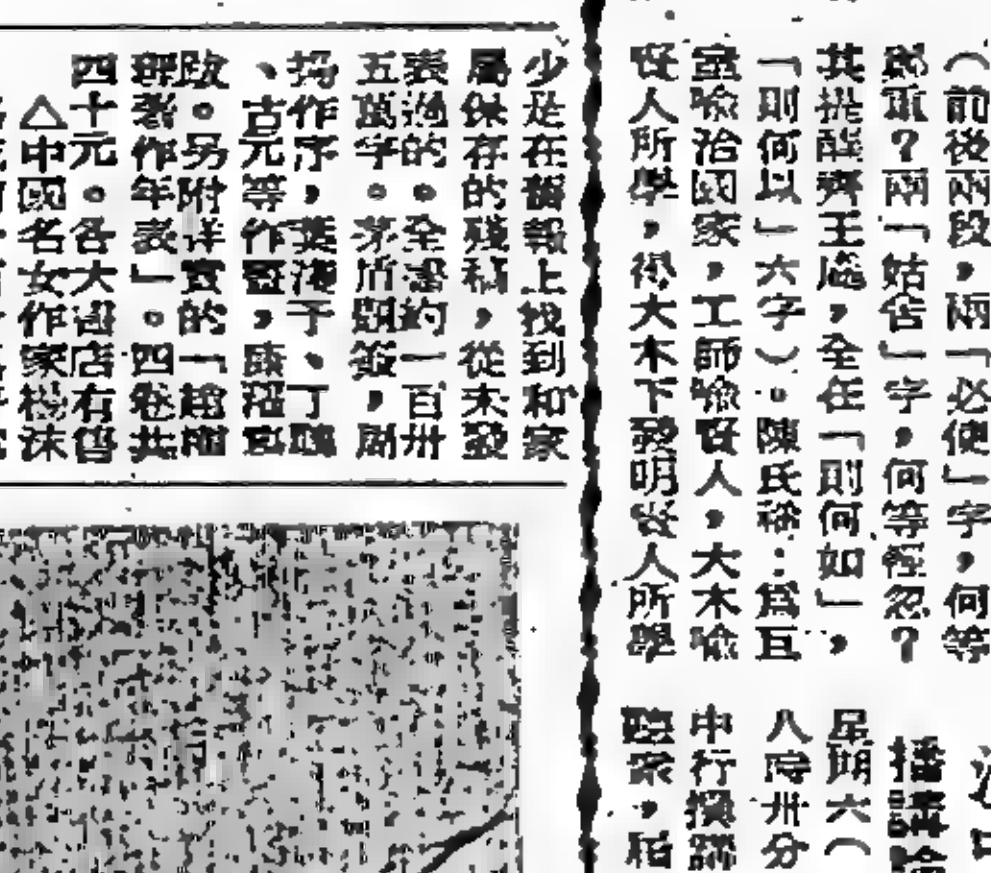 （前後兩段，兩「必使」字，何等
爲重？兩「姑舍」字，何等輕忽？
其提醒齊王處，全在「則何如」，
「則何以」六字）。陳氏稱：爲巨
室喻治國家，工師喻賢人，大木喻
賢人所學，得大木下發明賢人所學
星期六（
八時卅分
中行
少是在舊報上找到和家
屬保存的殘稿，從未發
表過的。全書約一百卅
五萬字。茅盾題簽，周
揚作序，葉淺予、丁聰
、古元等作畫，康濯寫
跋。另附詳實的「趙樹
理著作年表」。四卷共
四十元。各大書店有售
△中國名女作家楊沫